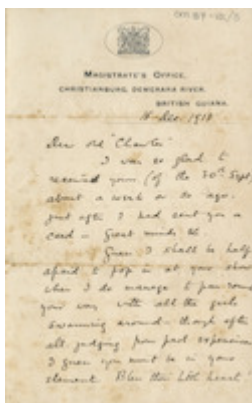 MAGISTRATE'S OFFICE,
CHRISTIANBURG, DEMERARA RIVER,
BRITISH GUIANA.
Dec 1918
Dear old "
I was so glad to
received yours (of the 30th Sept.
about a week or so ago.
just after I had sent you a
card – Great minds &c.
Guess I shall be half
afraid to pop in at your show
when I do manage to pass round
your way with all the girls
swarming around – though after
all, judging from past experience
I guess you must be in your
element. Bless their little hearts